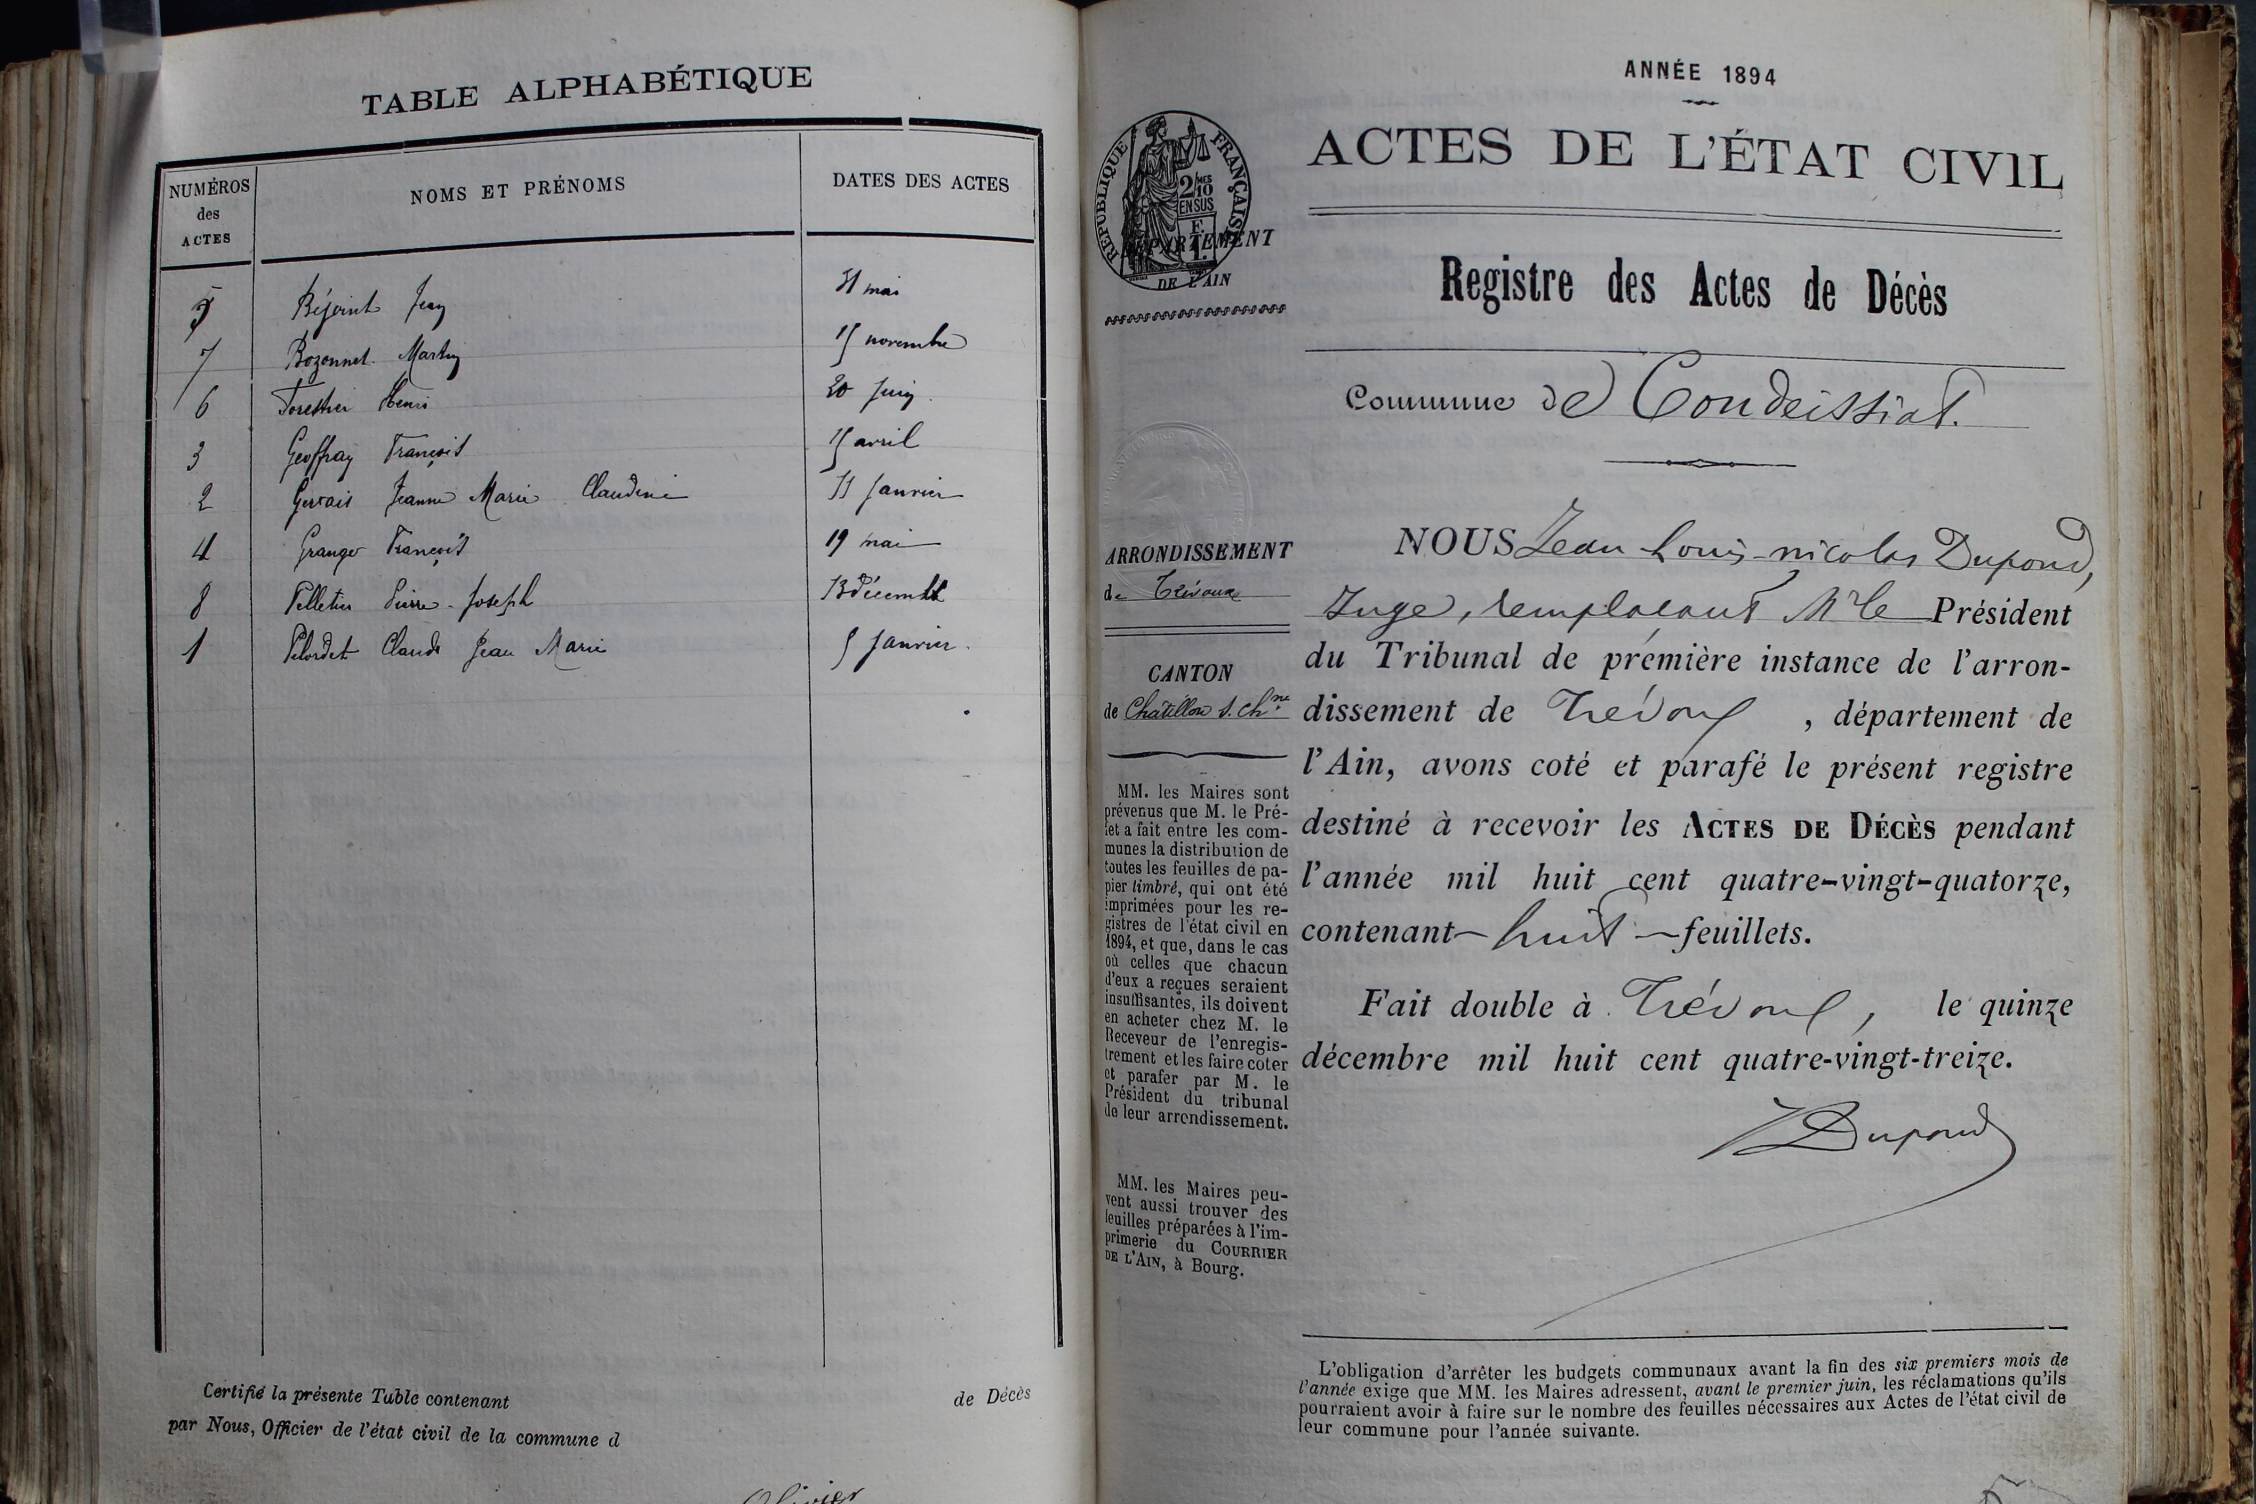 TABLE ALPHABÉTIQUE
NUMÉROS
des
ACTES
NOMS ET PRÉNOMS
DATES DES ACTES
5 Béjoint Jean 31 mai
7 Bozonnet Martin 15 novembre
6 Forestier Henri 20 juin
3 Geoffray François 15 avril
2 Gervais Jeanne Marie Claudine 11 Janvier
4 Granger François 19 mai
8 Pelletier Pierre-Joseph 13 décembre
1 Pelordet Claude Jean Marie 5 Janvier
Certifié la présente Table contenant de Décès
par Nous, Officier de l'état civil de la commune d
Olivier
ANNÉE 1894
RÉPUBLIQUE FRANÇAISE
2/10MES
EN SUS
DÉPARTEMENT
DE L'AIN
ACTES DE L'ÉTAT CIVIL
Registre des Actes de Décès
Commune de Condeissiat.
ARRONDISSEMENT
de Trévoux
CANTON
de Châtillon s. Chne
MM. les Maires sont
prévenus que M. le Pré-
fet a fait entre les com-
munes la distribution de
toutes les feuilles de pa-
pier timbré, qui ont été
imprimées pour les re-
gistres de l'état civil en
1894, et que, dans le cas
où celles que chacun
d'eux a reçues seraient
insuffisantes, ils doivent
en acheter chez M. le
Receveur de l'enregis-
trement et les faire coter
et parafer par M. le
Président du tribunal
de leur arrondissement.
MM. les Maires peu-
vent aussi trouver des
feuilles préparées à l'im-
primerie du COURRIER
DE L'AIN, à Bourg.
NOUS Jean Louis-nicolas Dupond,
Juge, remplaçant Mr le Président
du Tribunal de première instance de l'arron-
dissement de Trévoux, département de
l'Ain, avons coté et parafé le présent registre
destiné à recevoir les ACTES DE DÉCÈS pendant
l'année mil huit cent quatre-vingt-quatorze,
contenant huit feuillets.
Fait double à Trévoux, le quinze
décembre mil huit cent quatre-vingt-treize.
Dupond
L'obligation d'arrêter les budgets communaux avant la fin des six premiers mois de
l'année exige que MM. les Maires adressent, avant le premier juin, les réclamations qu'ils
pourraient avoir à faire sur le nombre des feuilles nécessaires aux Actes de l'état civil de
leur commune pour l'année suivante.